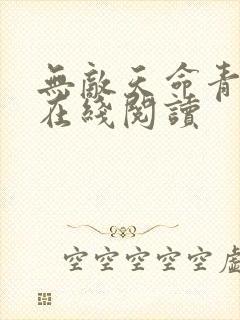 無敵天命青
在綫閱讀
空空空空空虛